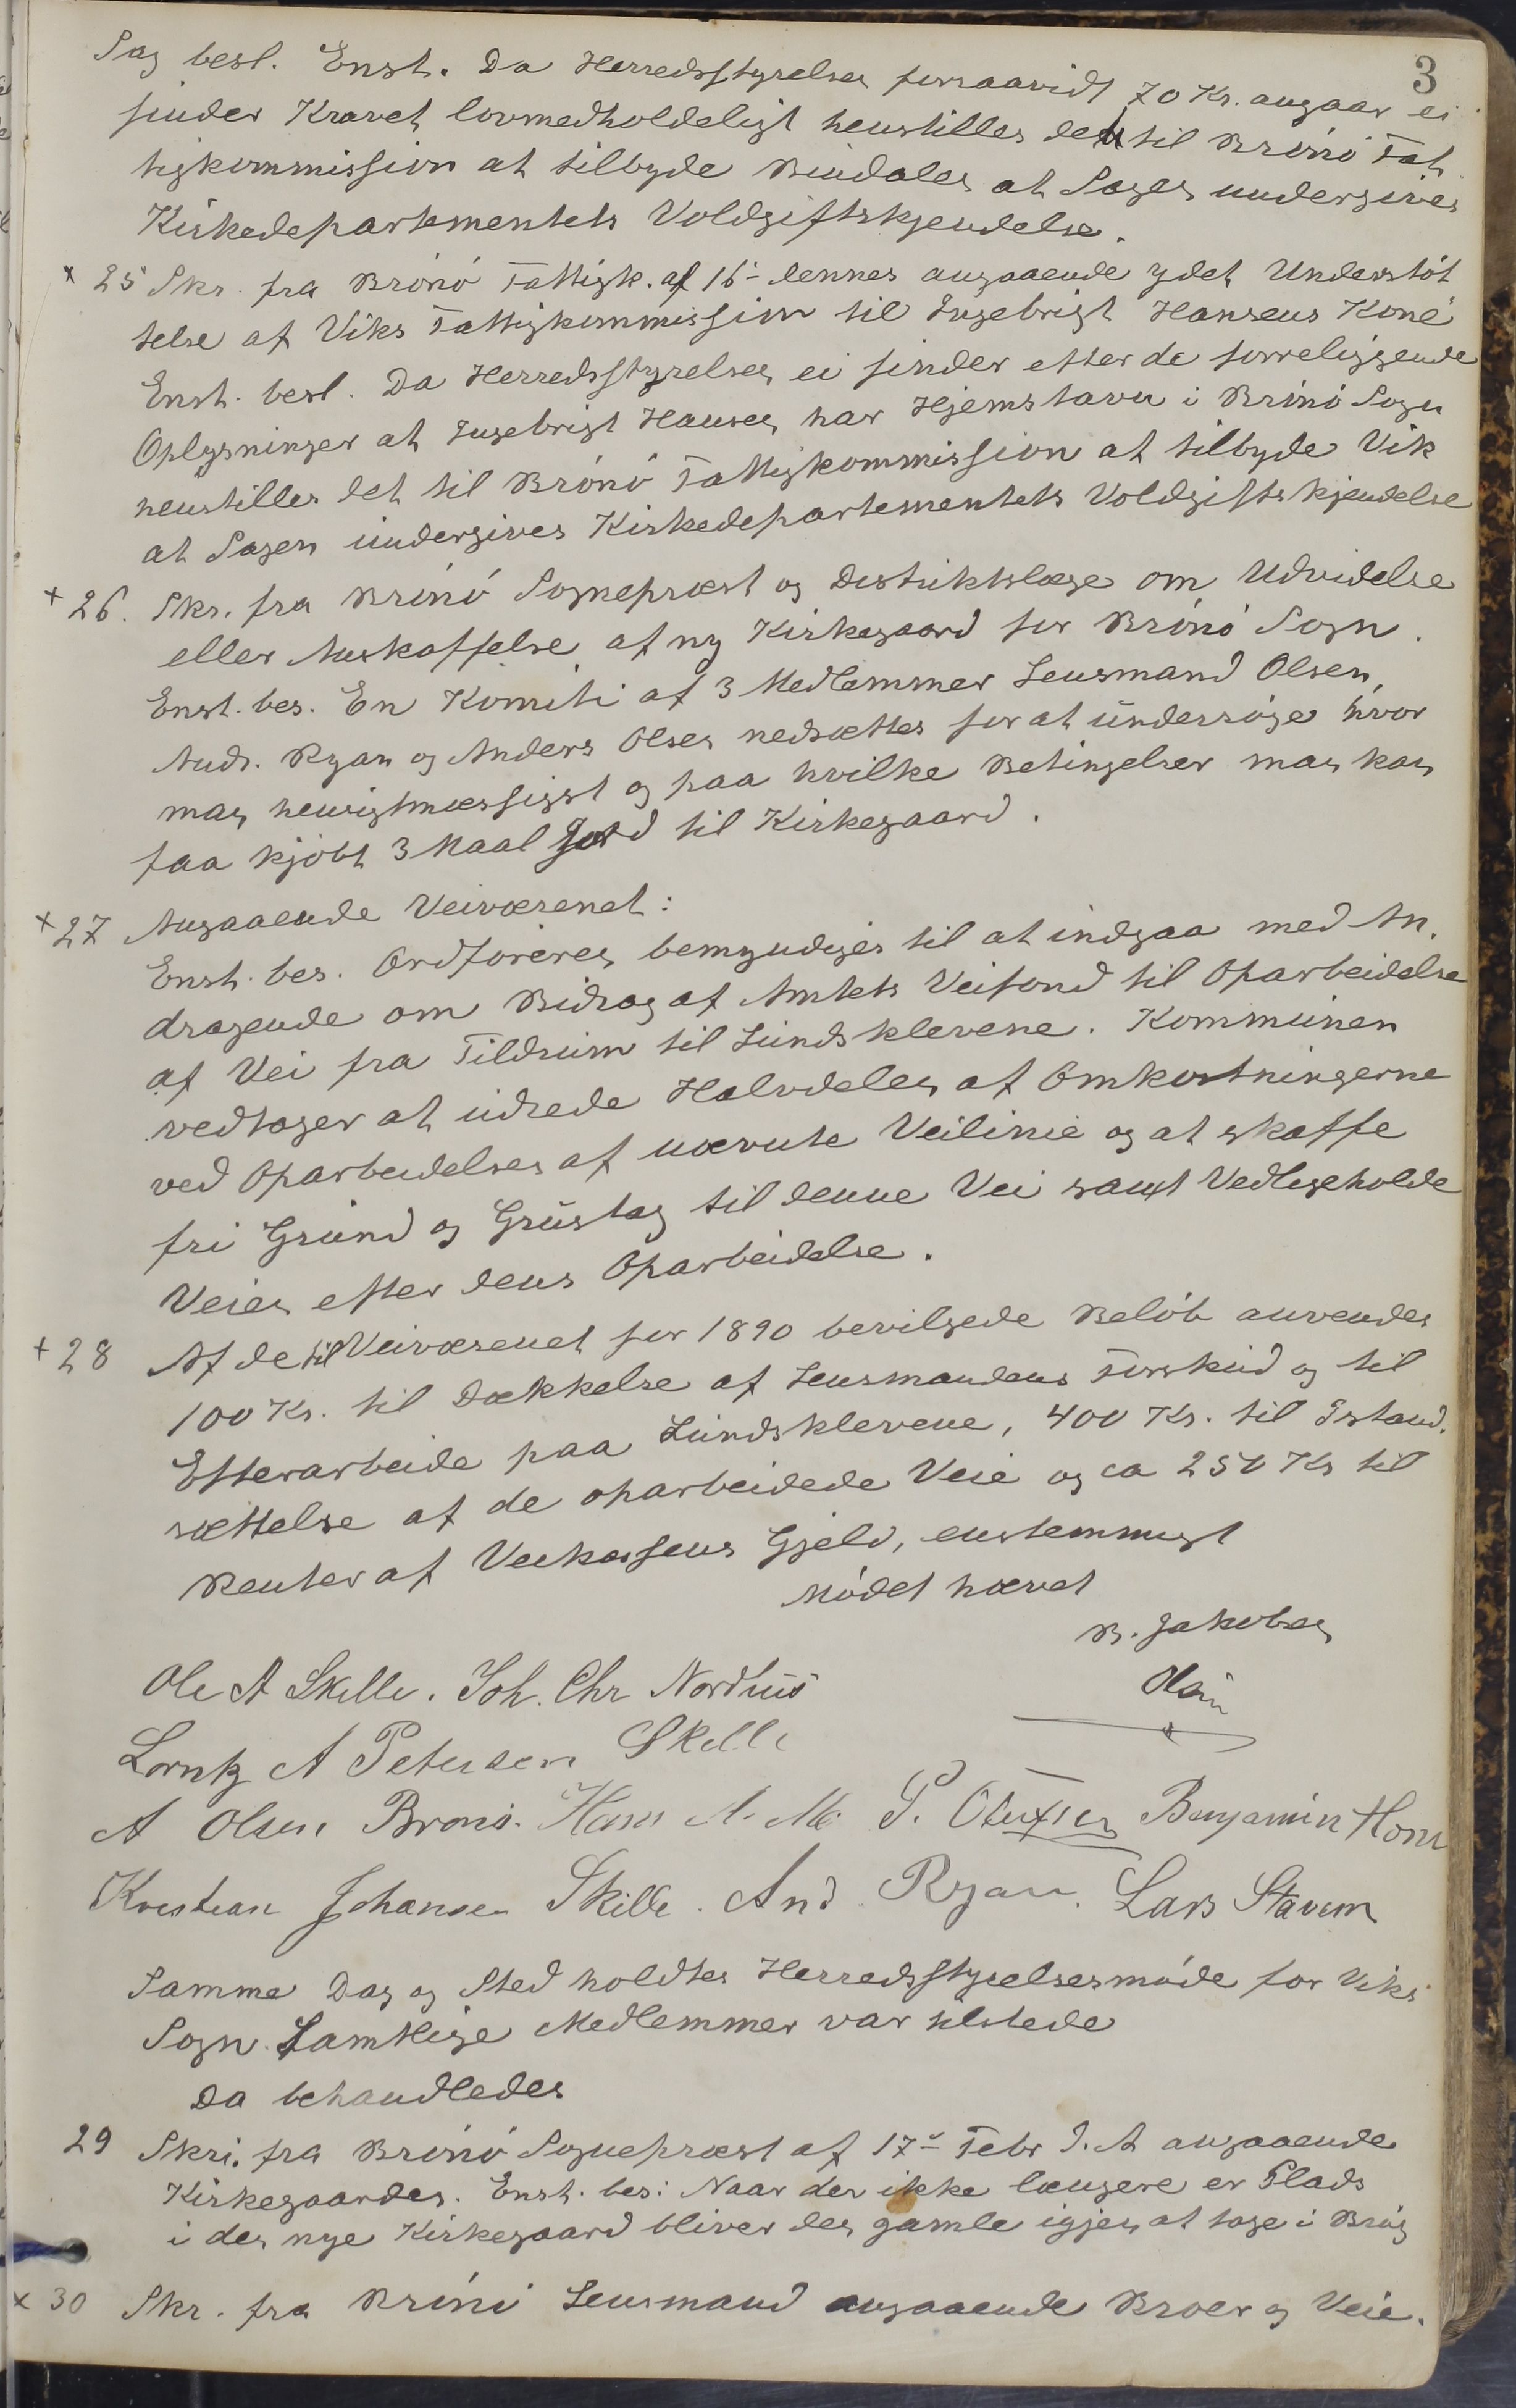 3
Sag besl. Enst. Da Herredsstyrelsen forsaavidt 70 Kr. angaar ei
finder Kravet lovmedholdeligt henstilles det til Brønø Fat
tigkommission at tilbyde Bindalen at Sagen undergives
Kirkedepartementets Voldgiftskjendelse.
x 25 Skr. fra Brønø Fattigk. af 16- dennes angaaende ydet Understøt
telse af Viks Fattigkommission til Ingebrigt Hansens Kone
Enst. besl. Da Herredsstyrelsen ei finder efter de forreliggende
Oplysninger at Ingebrigt Hansen har Hjemstavn i Brønø Sogn
henstilles det til Brønø Fattigkommission at tilbyde Vik
at Sagen undergives Kirkedepartementets Voldgiftskjendelse
+ 26. Skr. fra Brønø Sogneprest og Distriktslæge om Udvidelse
eller Anskaffelse af ny Kirkegaard for Brønø Sogn.
Enst. bes. En Komite af 3 Medlemmer Lensmand Olsen,
Andr. Ryan og Anders Olsen nedsættes for at undersøge hvor
man hensigtmæssigst og paa hvilke Betingelser man kan
faa kjøbt 3 Maal Jord til Kirkegaard.
+ 27 Angaaende Veivæsenet:
Enst. bes. Ordføreren bemyndiges til at indgaa med An.
dragende om Bidrag af Amtets Veifond til Oparbeidelse
af Vei fra Tildrum til Lundsklevene. Kommunen
vedtager at udrede Halvdelen af Omkostningerne
ved Oparbeidelsen af nævnte Veilinie og at skaffe
fri Grund og Grustag til denne Vei samt Vedligeholde
Veien efter dens Oparbeidelse.
+ 28 Af de til Veivæsenet for 1890 bevilgede Beløb anvendes
100 Kr. til Dækkelse af Lensmandens Forskud og til
Efterarbeide paa Lundsklevene, 400 Kr. til Istand.
sættelse af de oparbeidede Veie og ca 250 Kr til
Renter af Veikassens Gjeld, enstemmigt
Mødet hævet
B. Jakobsen
Ole A Skille. Joh. Chr Nordhus
Lorntz A Petersen Skille
A Olsen Brønø. Hans A. Mo P. Olufsen Benjamin Horn
Kristian Johansen Skille. And Ryan. Lars Stavem
Samme Dag og Sted holdtes Herredsstyrelsesmøde for Viks
Sogn. Samtlige Medlemmer var tilstede
Da behandledes
29 Skri. fra Brønø Sogneprest af 17- Febr d. A angaaende
Kirkegaarden. Enst. bes: Naar der ikke længere er Plads
i den nye Kirkegaard bliver den gamle igjen at tage i Brug
x 30 Skr. fra Brønø Lensmand angaaende Broer og Veie.